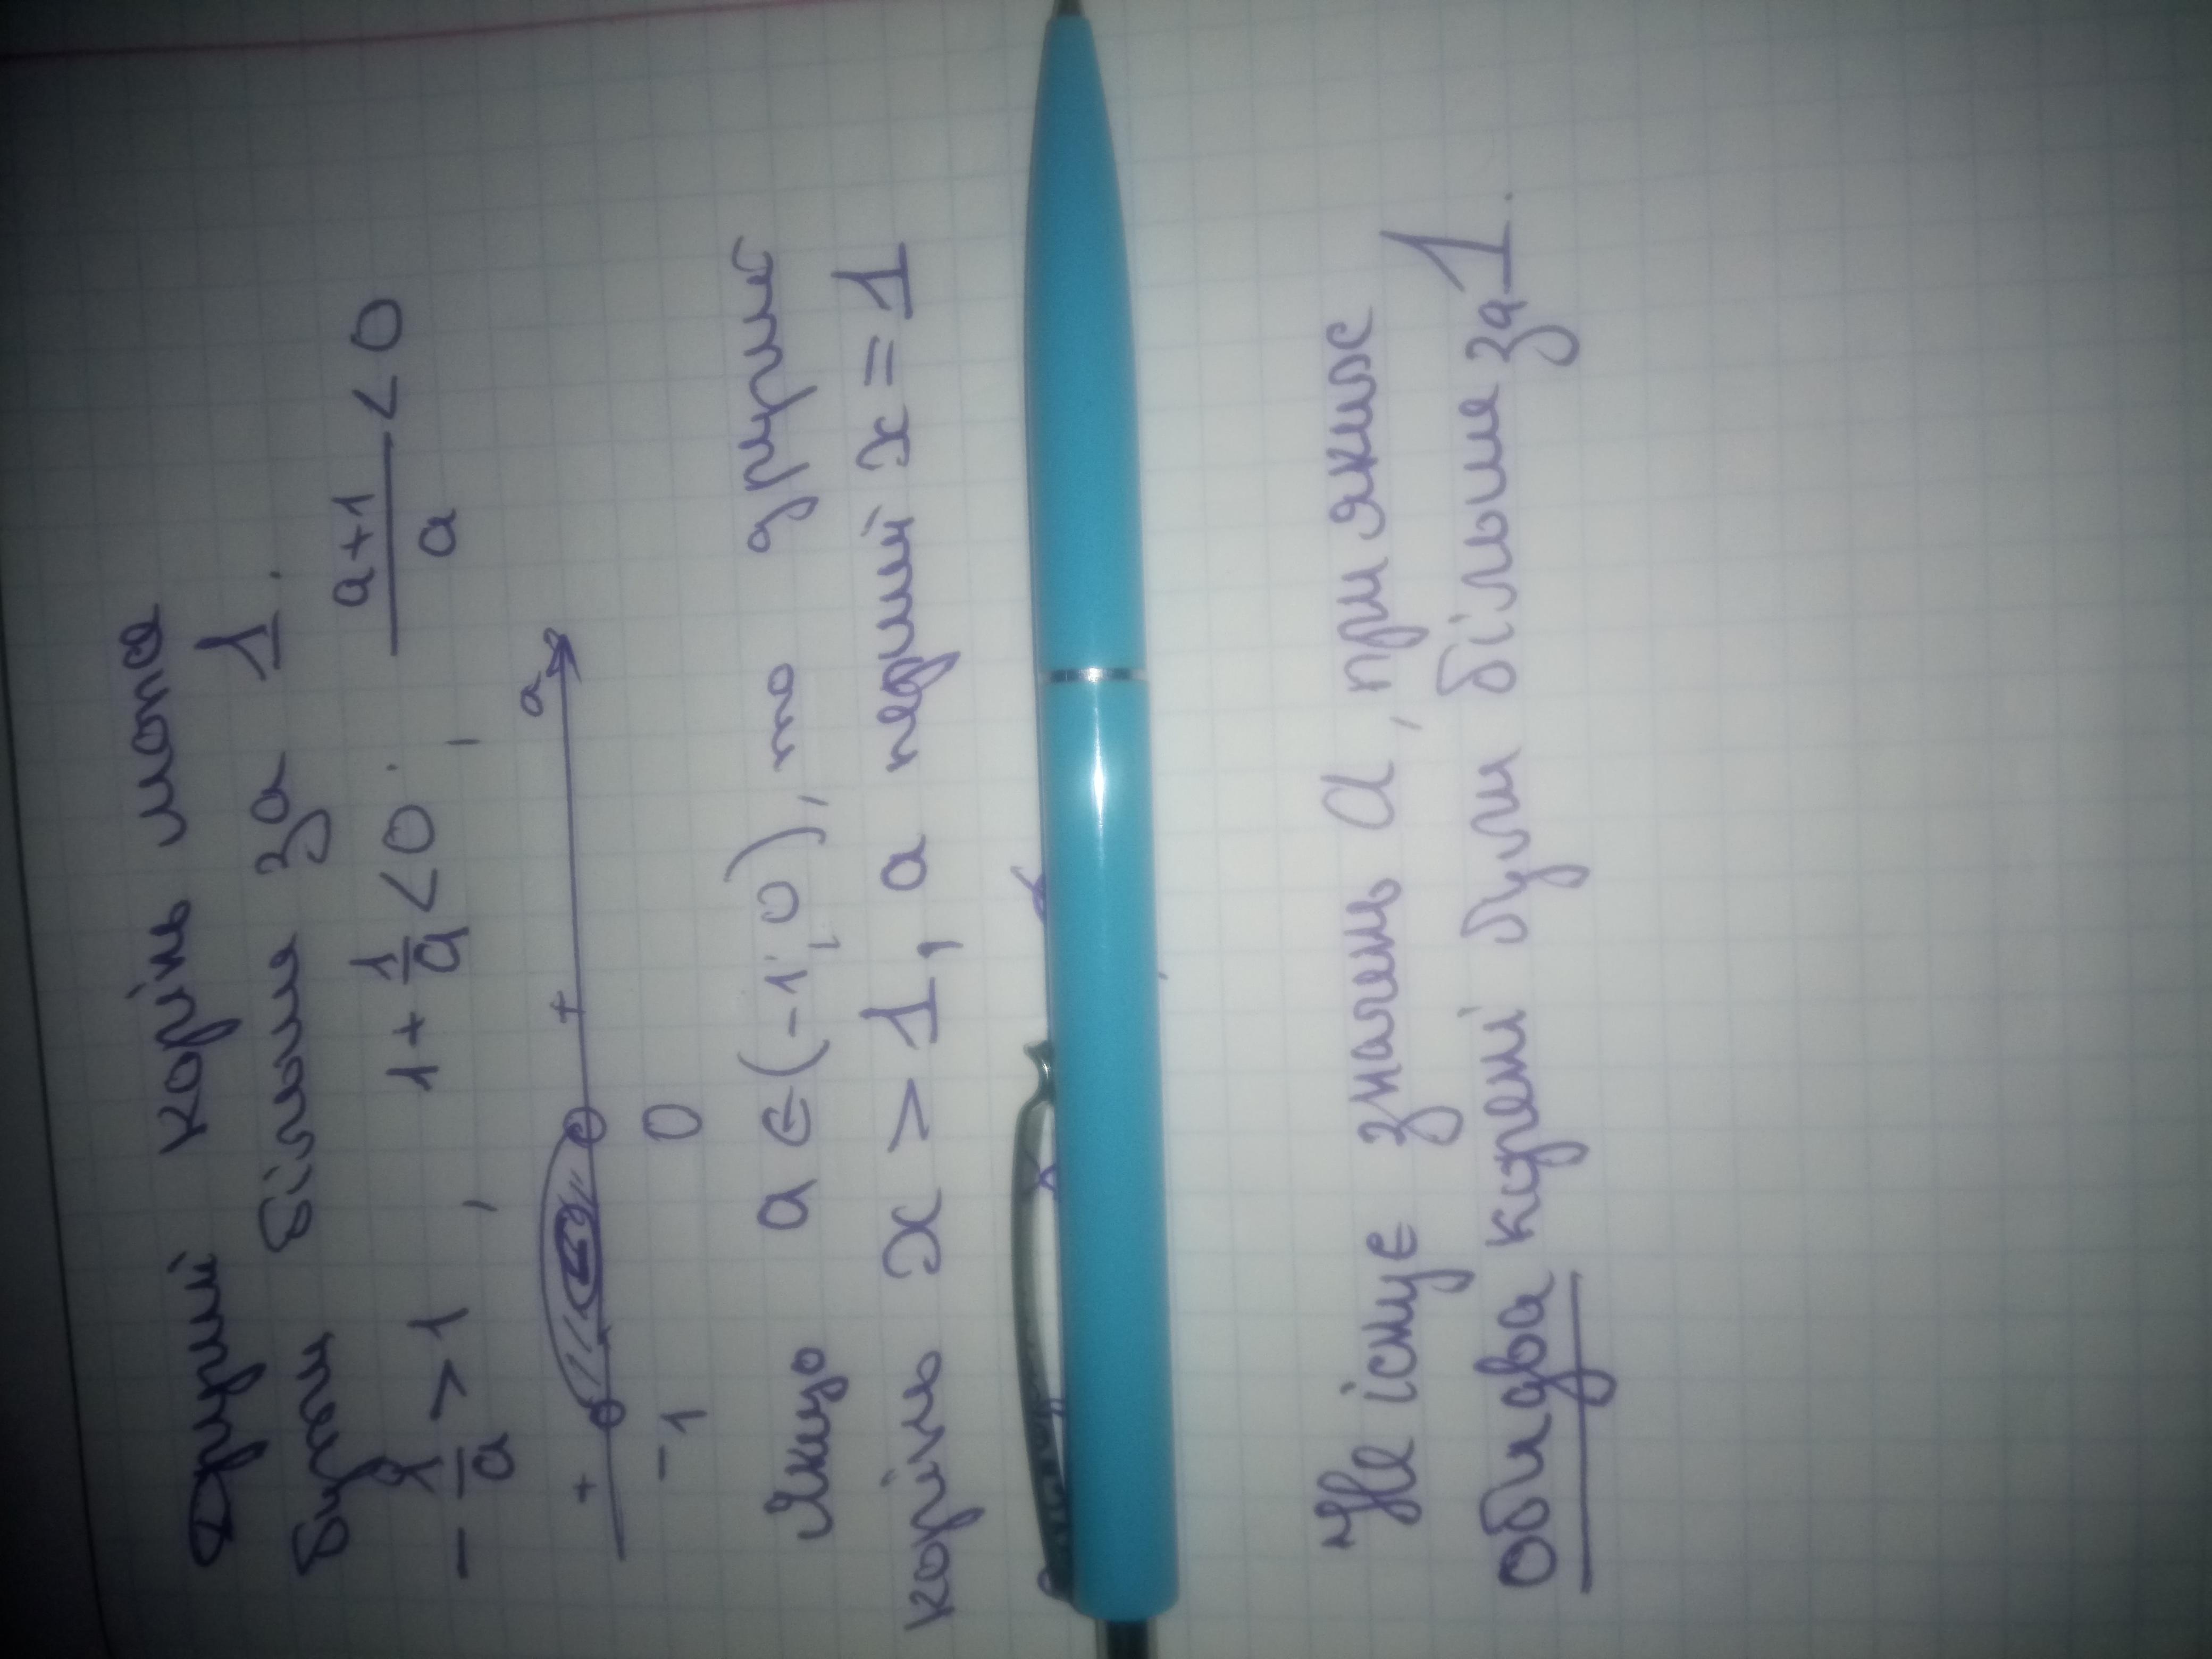 Другий корінь може
бути більше за 1.
-1/a > 1, 1 + 1/a < 0, (a+1)/a < 0
+ + a
-1 0
Якщо a ∈ (-1; 0), то другий
корінь x > 1, а перший x = 1
Не існує значень a, при яких
обидва корені були більше за 1.